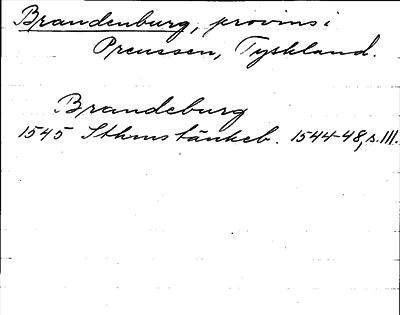 Brandenburg, provins i
Preussen, Tyskland.
Brandeburg
1545 Sthms tänkeb. 1544-48, s. 111.